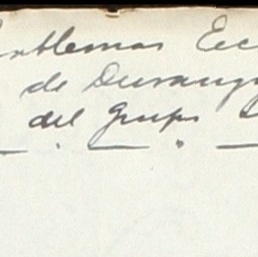 oblemas Ec
de Durang
del Grupo